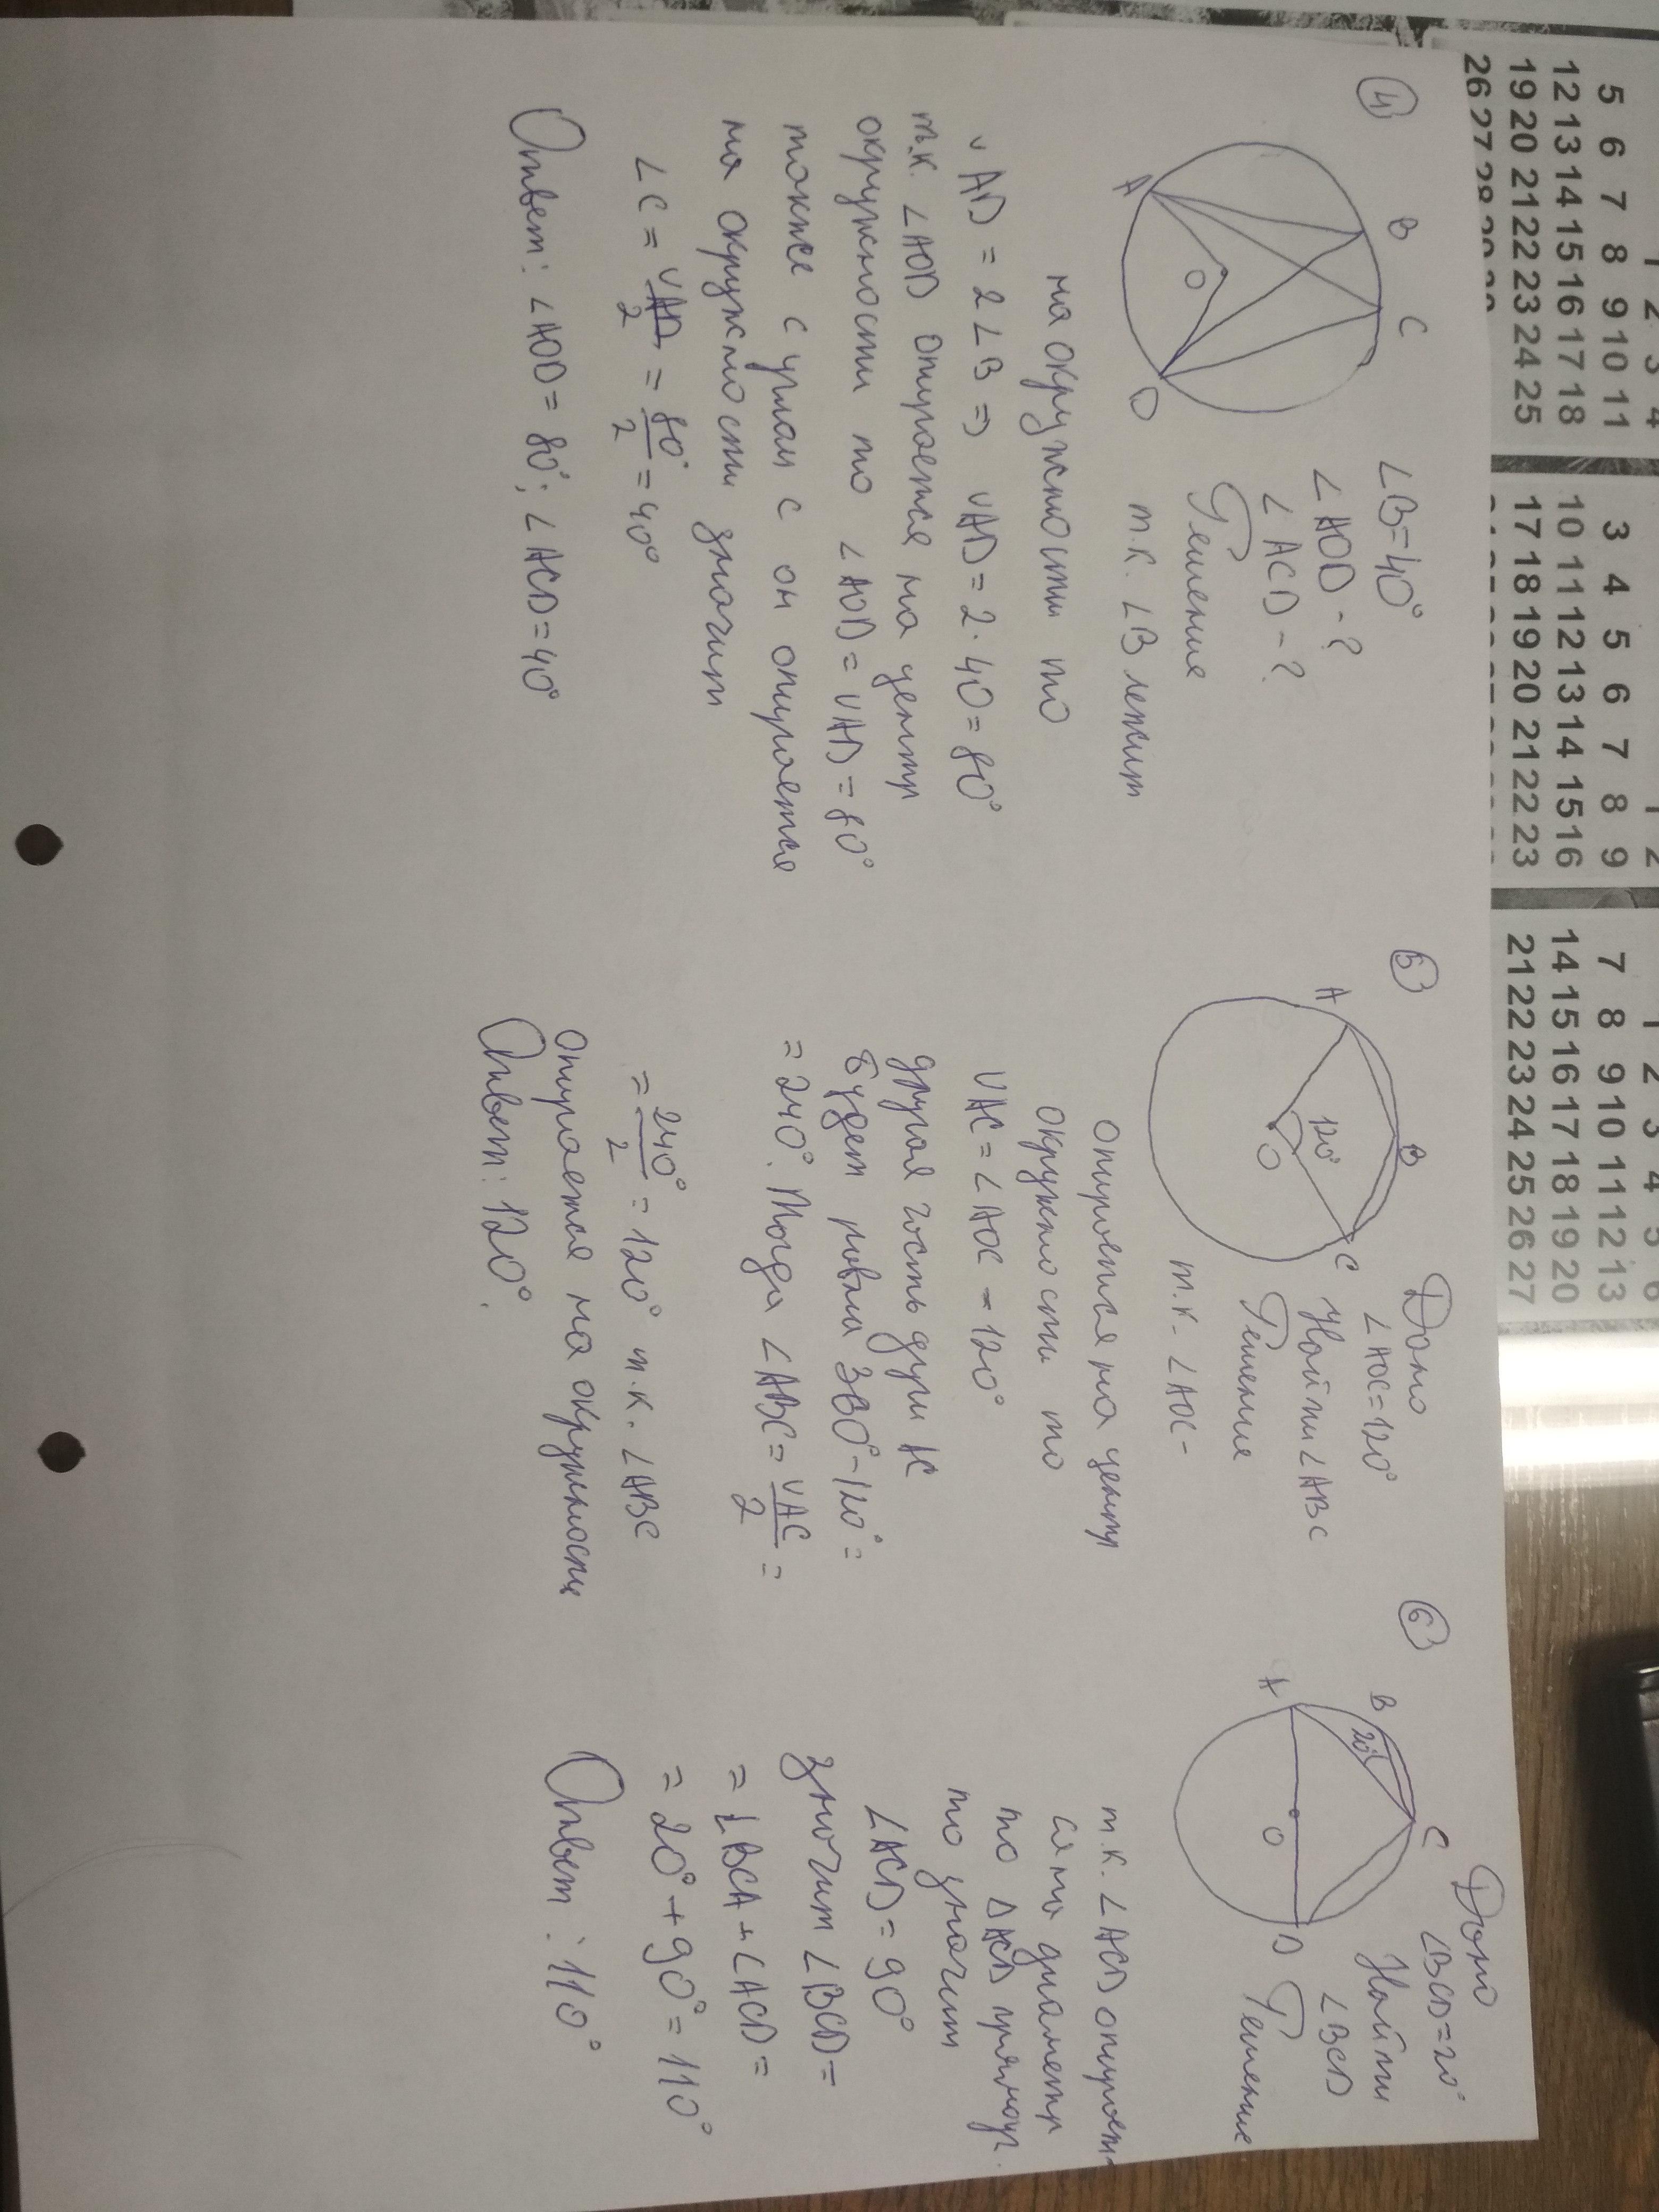 4
A
B
C
D
O
∠B=40°
∠AOD-?
∠ACD-?
Решение
т.к. ∠B лежит
на окружности то
◡AD = 2∠B ⇒ ◡AD = 2·40 = 80°
т.к. ∠AOD опирается на центр
окружности то ∠AOD = ◡AD = 80°
также с углом C он опирается
на окружности значит
∠C = ◡AD/2 = 80°/2 = 40°
Ответ: ∠AOD = 80°; ∠ACD = 40°
5
A
B
C
O
120°
Дано
∠AOC=120°
Найти ∠ABC
Решение
т.к. ∠AOC -
опирается на центр
окружности то
◡AC = ∠AOC = 120°
другая часть дуги AC
будет равна 360°-120° =
= 240°. Тогда ∠ABC = ◡AC/2 =
= 240°/2 = 120° т.к. ∠ABC
опирается на окружности
Ответ: 120°.
6
A
B
C
D
O
20°
Дано
∠BCD=20°
Найти
∠BCD
Решение
т.к. ∠ACD опирает-
ся на диаметр
то △ACD прямоуг.
то значит
∠ACD = 90°
значит ∠BCD =
= ∠BCA + ∠ACD =
= 20° + 90° = 110°
Ответ: 110°
1 2 3 4
5 6 7 8 9 10 11
12 13 14 15 16 17 18
19 20 21 22 23 24 25
26 27 28 29 30
1 2
3 4 5 6 7 8 9
10 11 12 13 14 15 16
17 18 19 20 21 22 23
1 2 3 4 5 6
7 8 9 10 11 12 13
14 15 16 17 18 19 20
21 22 23 24 25 26 27